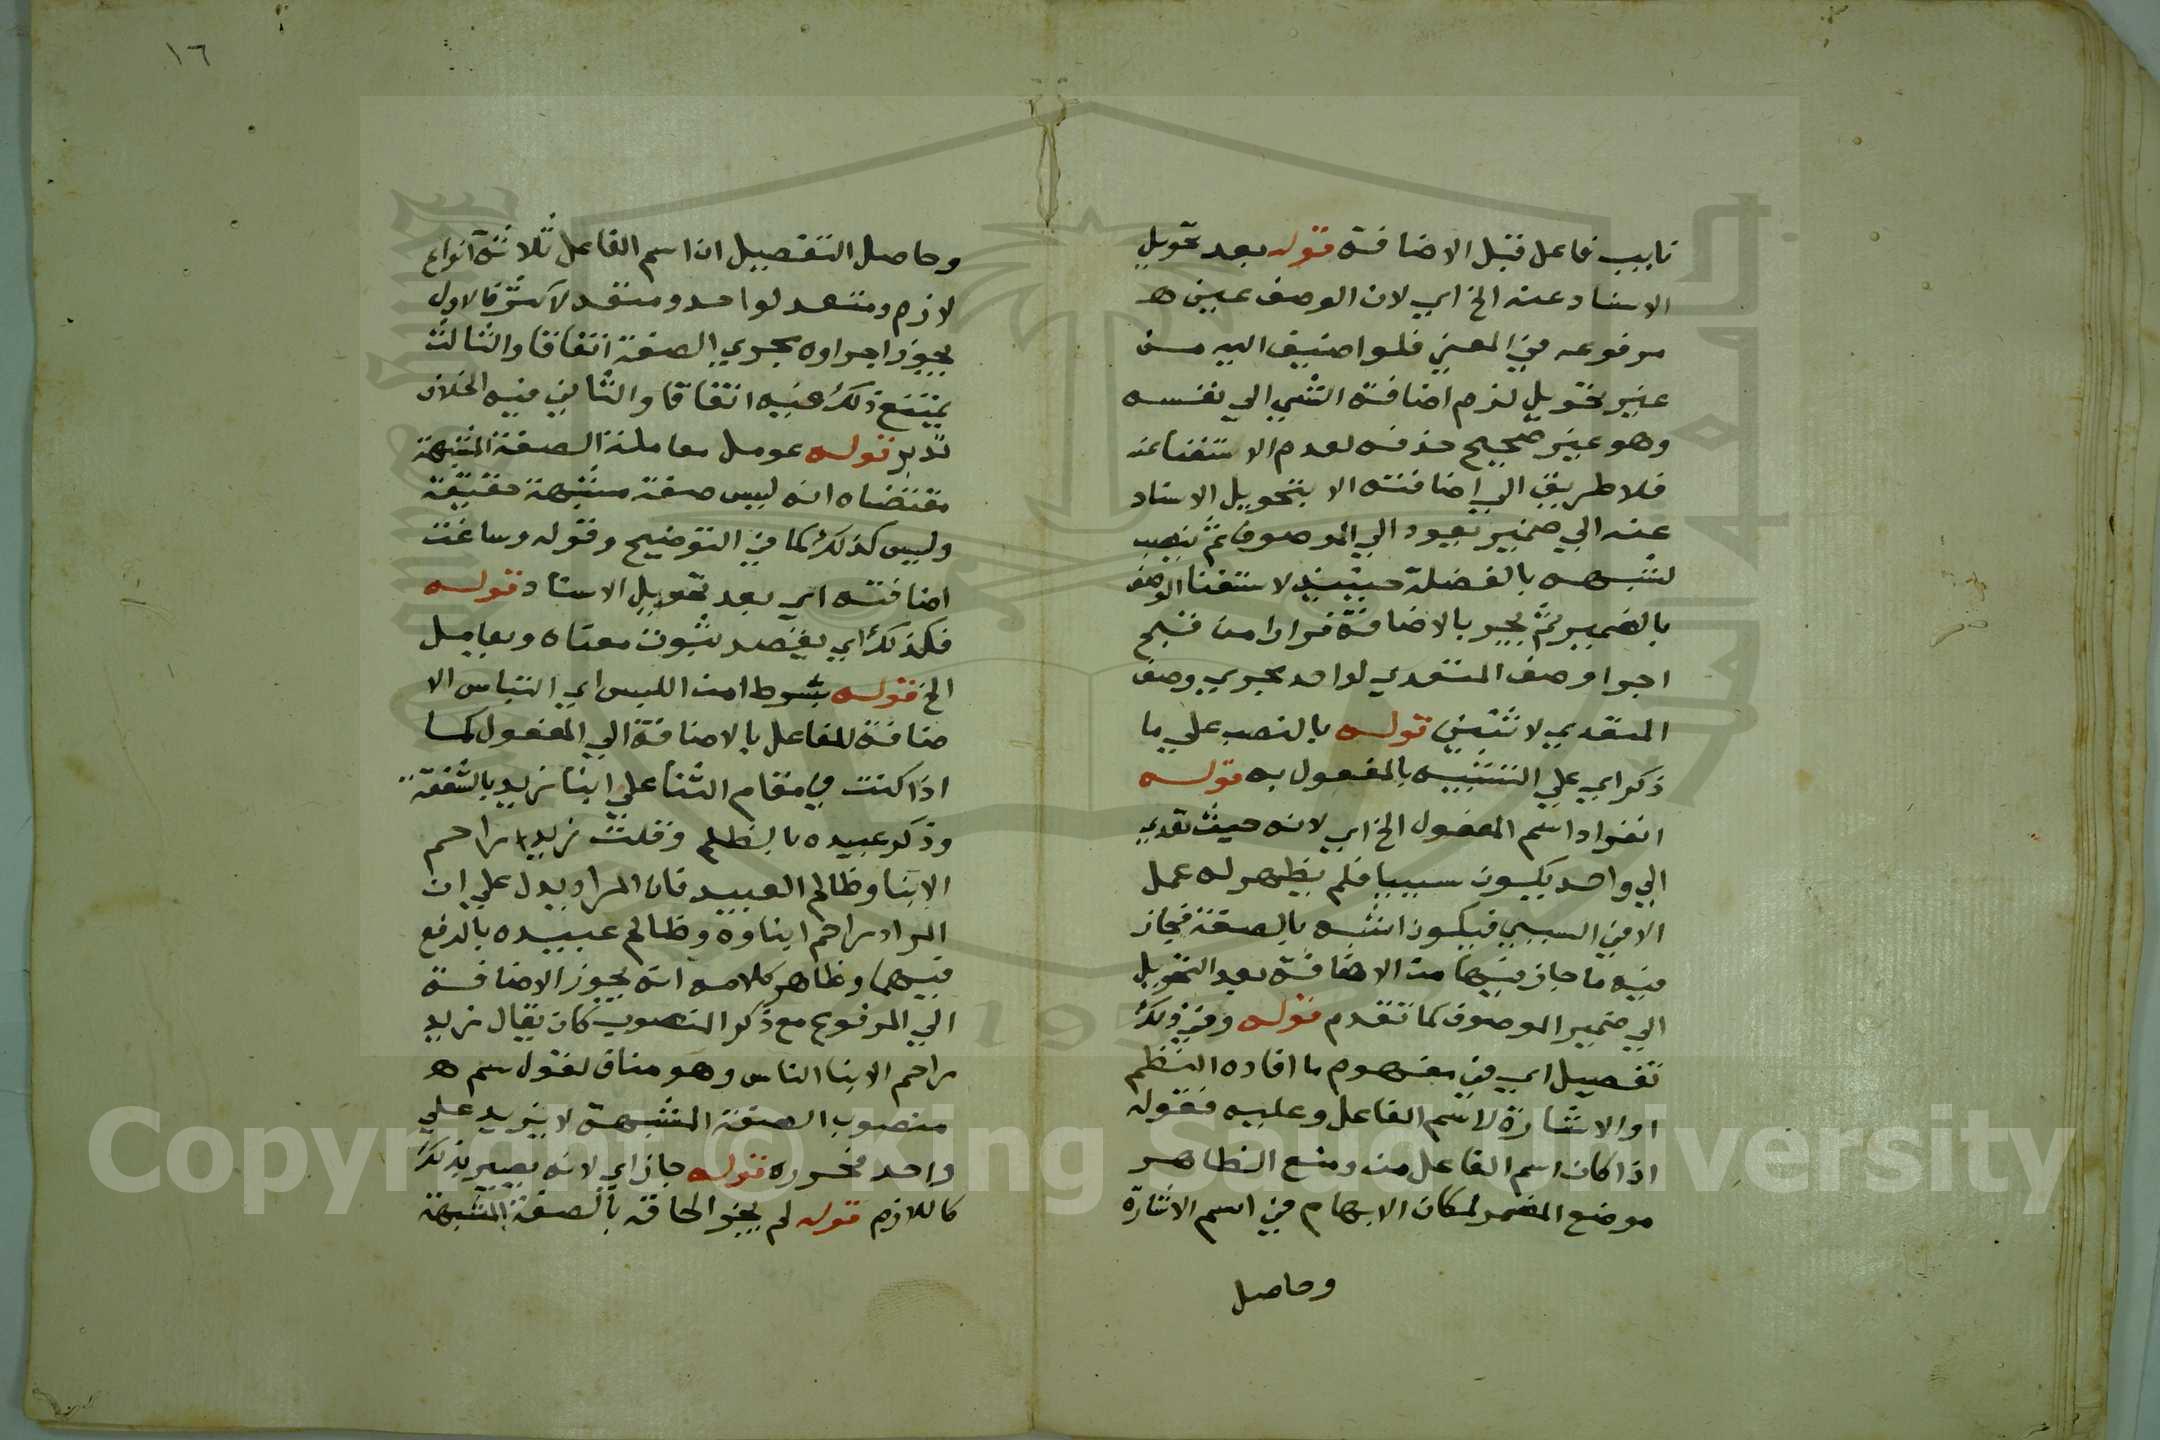 نايب فاعل قبل الاضافة قوله بعد تحويل
الاسناد عنه الخ اي لان الوصف عين ه
مرفوعه في المعني فلو اضيف اليه من
غير تحويل لزم اضافة الشي الي نفسه
وهو غير صحيح حذفه لعدم الاستغنا عنه
فلا طريق الي اضافته الا بتحويل الاسناد
عنه الي ضمير يعود الي الموصوف ثم ينصب
لشبهه بالفضلة حينيذ لاستغنا الوصف
بالضمير ثم يجر بالاضافة فرارا من قبح
اجرا وصف المتعدي لواحد مجري وصف
المتعدي لاثنين قوله بالنصب علي ما
ذكر اي علي التشبيه بالمفعول به قوله
انفراد اسم المفعول الخ اي لانه حيث تعدي
الي واحد يكون سببيا فلم يظهر له عمل
الا في السببي فيكون اشبه بالصفة فجاز
فيه ما جاز فيها من الاضافة بعد التحويل
الي ضمير الموصوف كما تقدم قوله وفي ذلك
تفصيل اي في مفهوم ما افاده النظم
او الاشارة لاسم الفاعل وعليه فقوله
اذا كان اسم الفاعل من وضع الظاهر
موضع المضمر لمكان الابهام في اسم الاشارة
وحاصل
١٦
وحاصل التفصيل ان اسم الفاعل ثلاثة انواع
لازم ومتعد لواحد ومتعد لاكثر فالاول
يجوز اجراوه مجري الصفة اتفاقا والثالث
يمتنع ذلك فيه اتفاقا والثاني فيه الخلاف
تدبر قوله عومل معاملة الصفة المشبهة
مقتضاه انه ليس صفة مشبهة حقيقة
وليس كذلك كما في التوضيح وقوله وساغت
اضافته اي بعد تحويل الاسناد قوله
فكذلك اي يقصد ثبوت معناه ويعامل
الخ قوله بشرط امن اللبس اي التباس الا
ضافة للفاعل بالاضافة الي المفعول كما
اذا كنت في مقام الثنا علي ابنا زيد بالشفقة
وذكر عبيده بالظلم وقلت زيد راحم
الابنا وظالم العبيد فان المراد يدل علي ان
المراد راحم ابناوه وظالم عبيده بالرفع
فيهما وظاهر كلامه انه يجوز الاضافة
الي المرفوع مع ذكر المنصوب كان يقال زيد
راحم الابنا الناس وهو مناف لقول سم ه
منصوب الصفة المشبهة لا يزيد علي
واحد فحرره قوله جاز اي لانه يصير بذلك
كاللازم قوله لم يجز الحاقه بالصفة المشبهة
Copyright © King Saud University